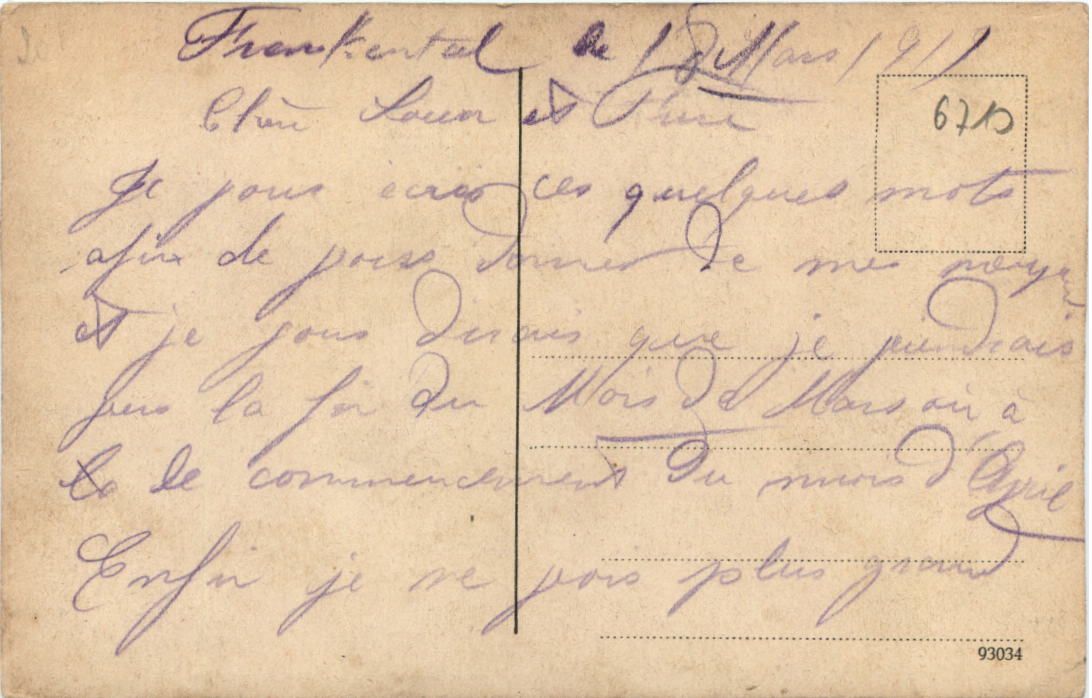 Frenkental le 18 Mars 1919
6713
Chère Soeur et
Je vous ecris ces quelques mots
afin de vous donner de mes nouvel
et je vous dirais que je viendrais
vers la fin du Mois de Mars ou à
le commencement du mois d'Avril
Enfin je ne vois plus grand
93034